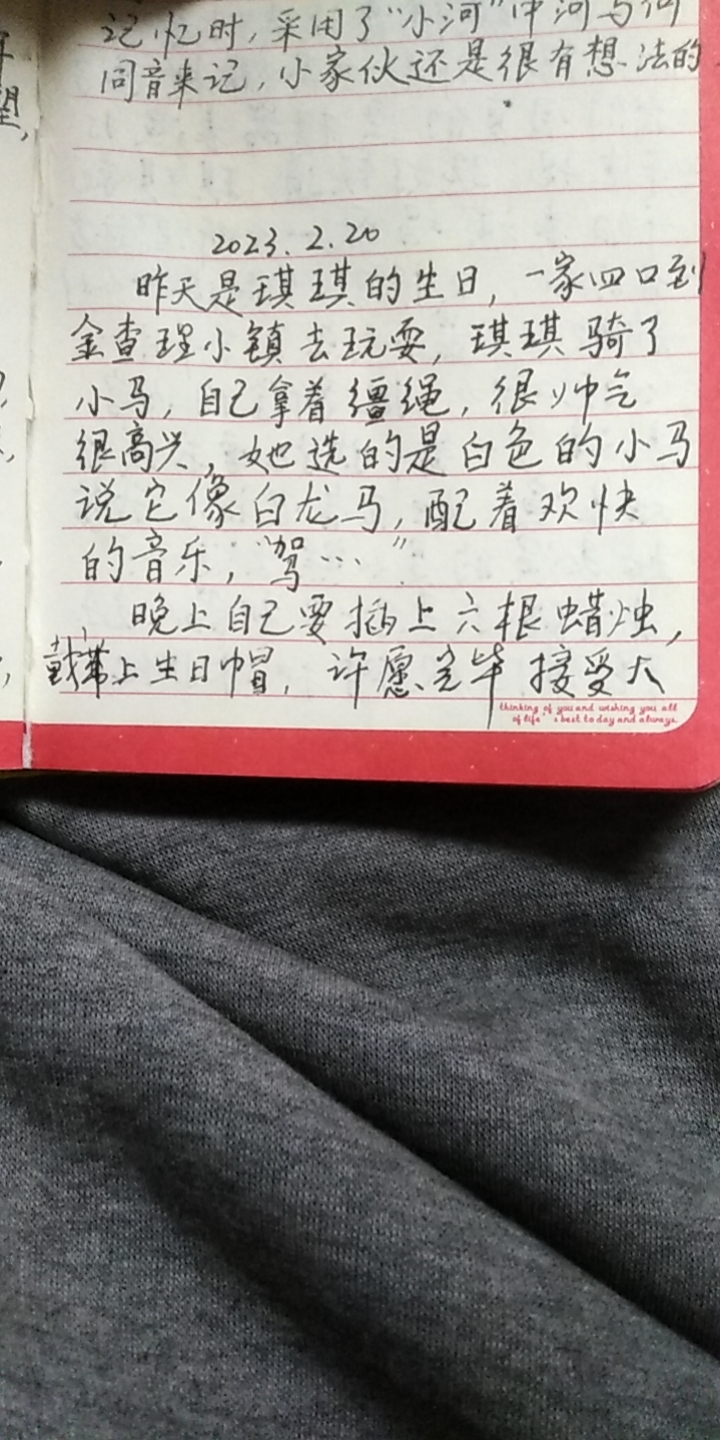 记忆时,采用了“小河”中河与何
同音来记,小家伙还是很有想法的
2023.2.20
昨天是琪琪的生日,一家四口到
金查理小镇去玩耍,琪琪骑了
小马,自己拿着缰绳,很帅气
很高兴,她选的是白色的小马
说它像白龙马,配着欢快
的音乐,“驾…”
晚上自己要插上六根蜡烛,
戴上生日帽,许愿完毕接受大
thinking of you and wishing you all
of life's best today and always.
望,